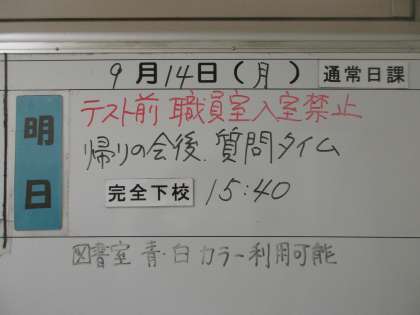 9月14日(月) 通常日課
明日
テスト前 職員室入室禁止
帰りの会後、質問タイム
完全下校 15:40
図書室 青・白カラー利用可能